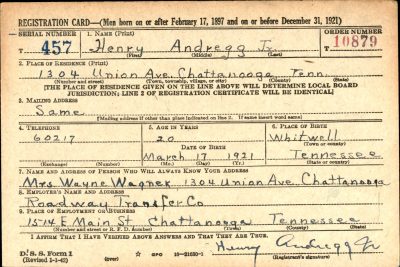 REGISTRATION CARD—(Men born on or after February 17, 1897 and on or before December 31, 1921)
SERIAL NUMBER 1. NAME (Print) ORDER NUMBER
T 457 Henry Andregg Jr. T 10879
(First) (Middle) (Last)
2. PLACE OF RESIDENCE (Print)
1304 Union Ave. Chattanooga Tenn.
(Number and street) (Town, township, village, or city) (County) (State)
[THE PLACE OF RESIDENCE GIVEN ON THE LINE ABOVE WILL DETERMINE LOCAL BOARD
JURISDICTION; LINE 2 OF REGISTRATION CERTIFICATE WILL BE IDENTICAL]
3. MAILING ADDRESS
Same
[Mailing address if other than place indicated on line 2. If same insert word same]
4. TELEPHONE 5. AGE IN YEARS 6. PLACE OF BIRTH
60217 20 Whitwell
DATE OF BIRTH (Town or county)
March 17 1921 Tennessee
(Exchange) (Number) (Mo.) (Day) (Yr.) (State or country)
7. NAME AND ADDRESS OF PERSON WHO WILL ALWAYS KNOW YOUR ADDRESS
Mrs Wayne Wagner 1304 Union Ave. Chattanooga
8. EMPLOYER'S NAME AND ADDRESS
Roadway Transfer Co.
9. PLACE OF EMPLOYMENT OR BUSINESS
1514 E Main St. Chattanooga Tennessee
(Number and street or R. F. D. number) (Town) (County) (State)
I AFFIRM THAT I HAVE VERIFIED ABOVE ANSWERS AND THAT THEY ARE TRUE.
D. S. S. Form 1 GPO 16—21630-1 Henry Andregg Jr
(Revised 1-1-42) (Registrant's signature)